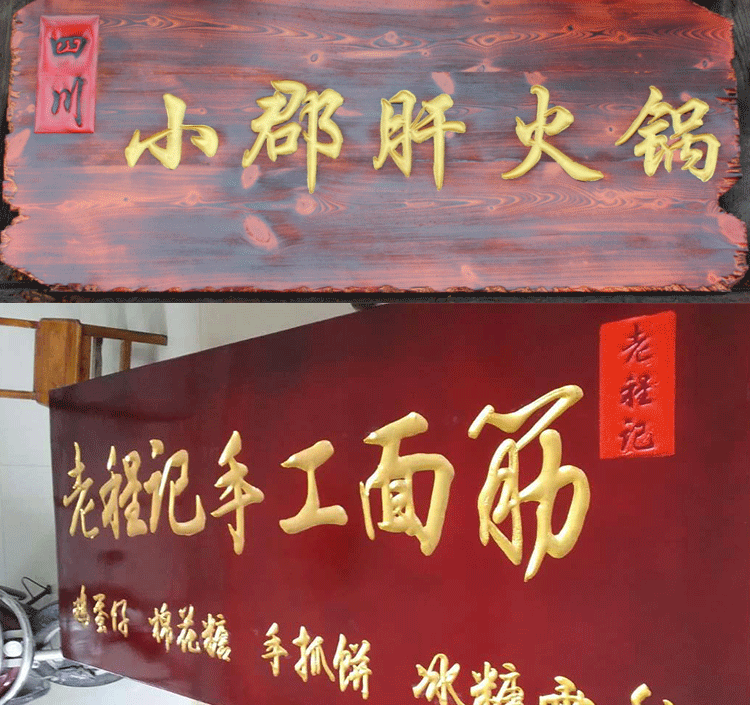 四川
小郡肝火锅
老程记
老程记手工面筋
鸡蛋仔 棉花糖 手抓饼 冰糖雪